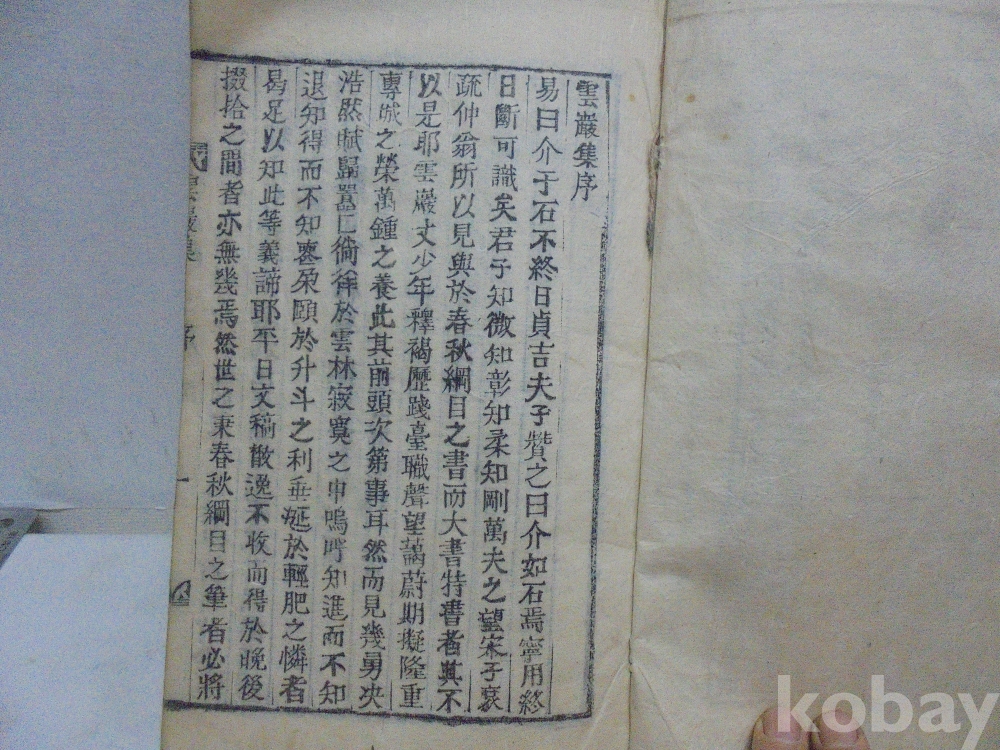 雲巖集序
易曰介于石不終日貞吉夫子贊之曰介如石焉寧用終
日斷可識矣君子知微知彰知柔知剛萬夫之望宋子裒
疏仲翁所以見與於春秋綱目之書而大書特書者其不
以是耶雲巖丈少年釋褐歷踐臺職聲望藹蔚期擬隆重
專城之榮萬鍾之養此其前頭次第事耳然而見幾勇决
浩然賦歸囂〻徜徉於雲林寂寞之中嗚呼知進而不知
退知得而不知喪朶頤於升斗之利垂涎於輕肥之憐者
曷足以知此等義諦耶平日文稿散逸不收而得於晚後
掇拾之間者亦無幾焉然世之秉春秋綱目之筆者必將
雲巖集 序 一
kobay